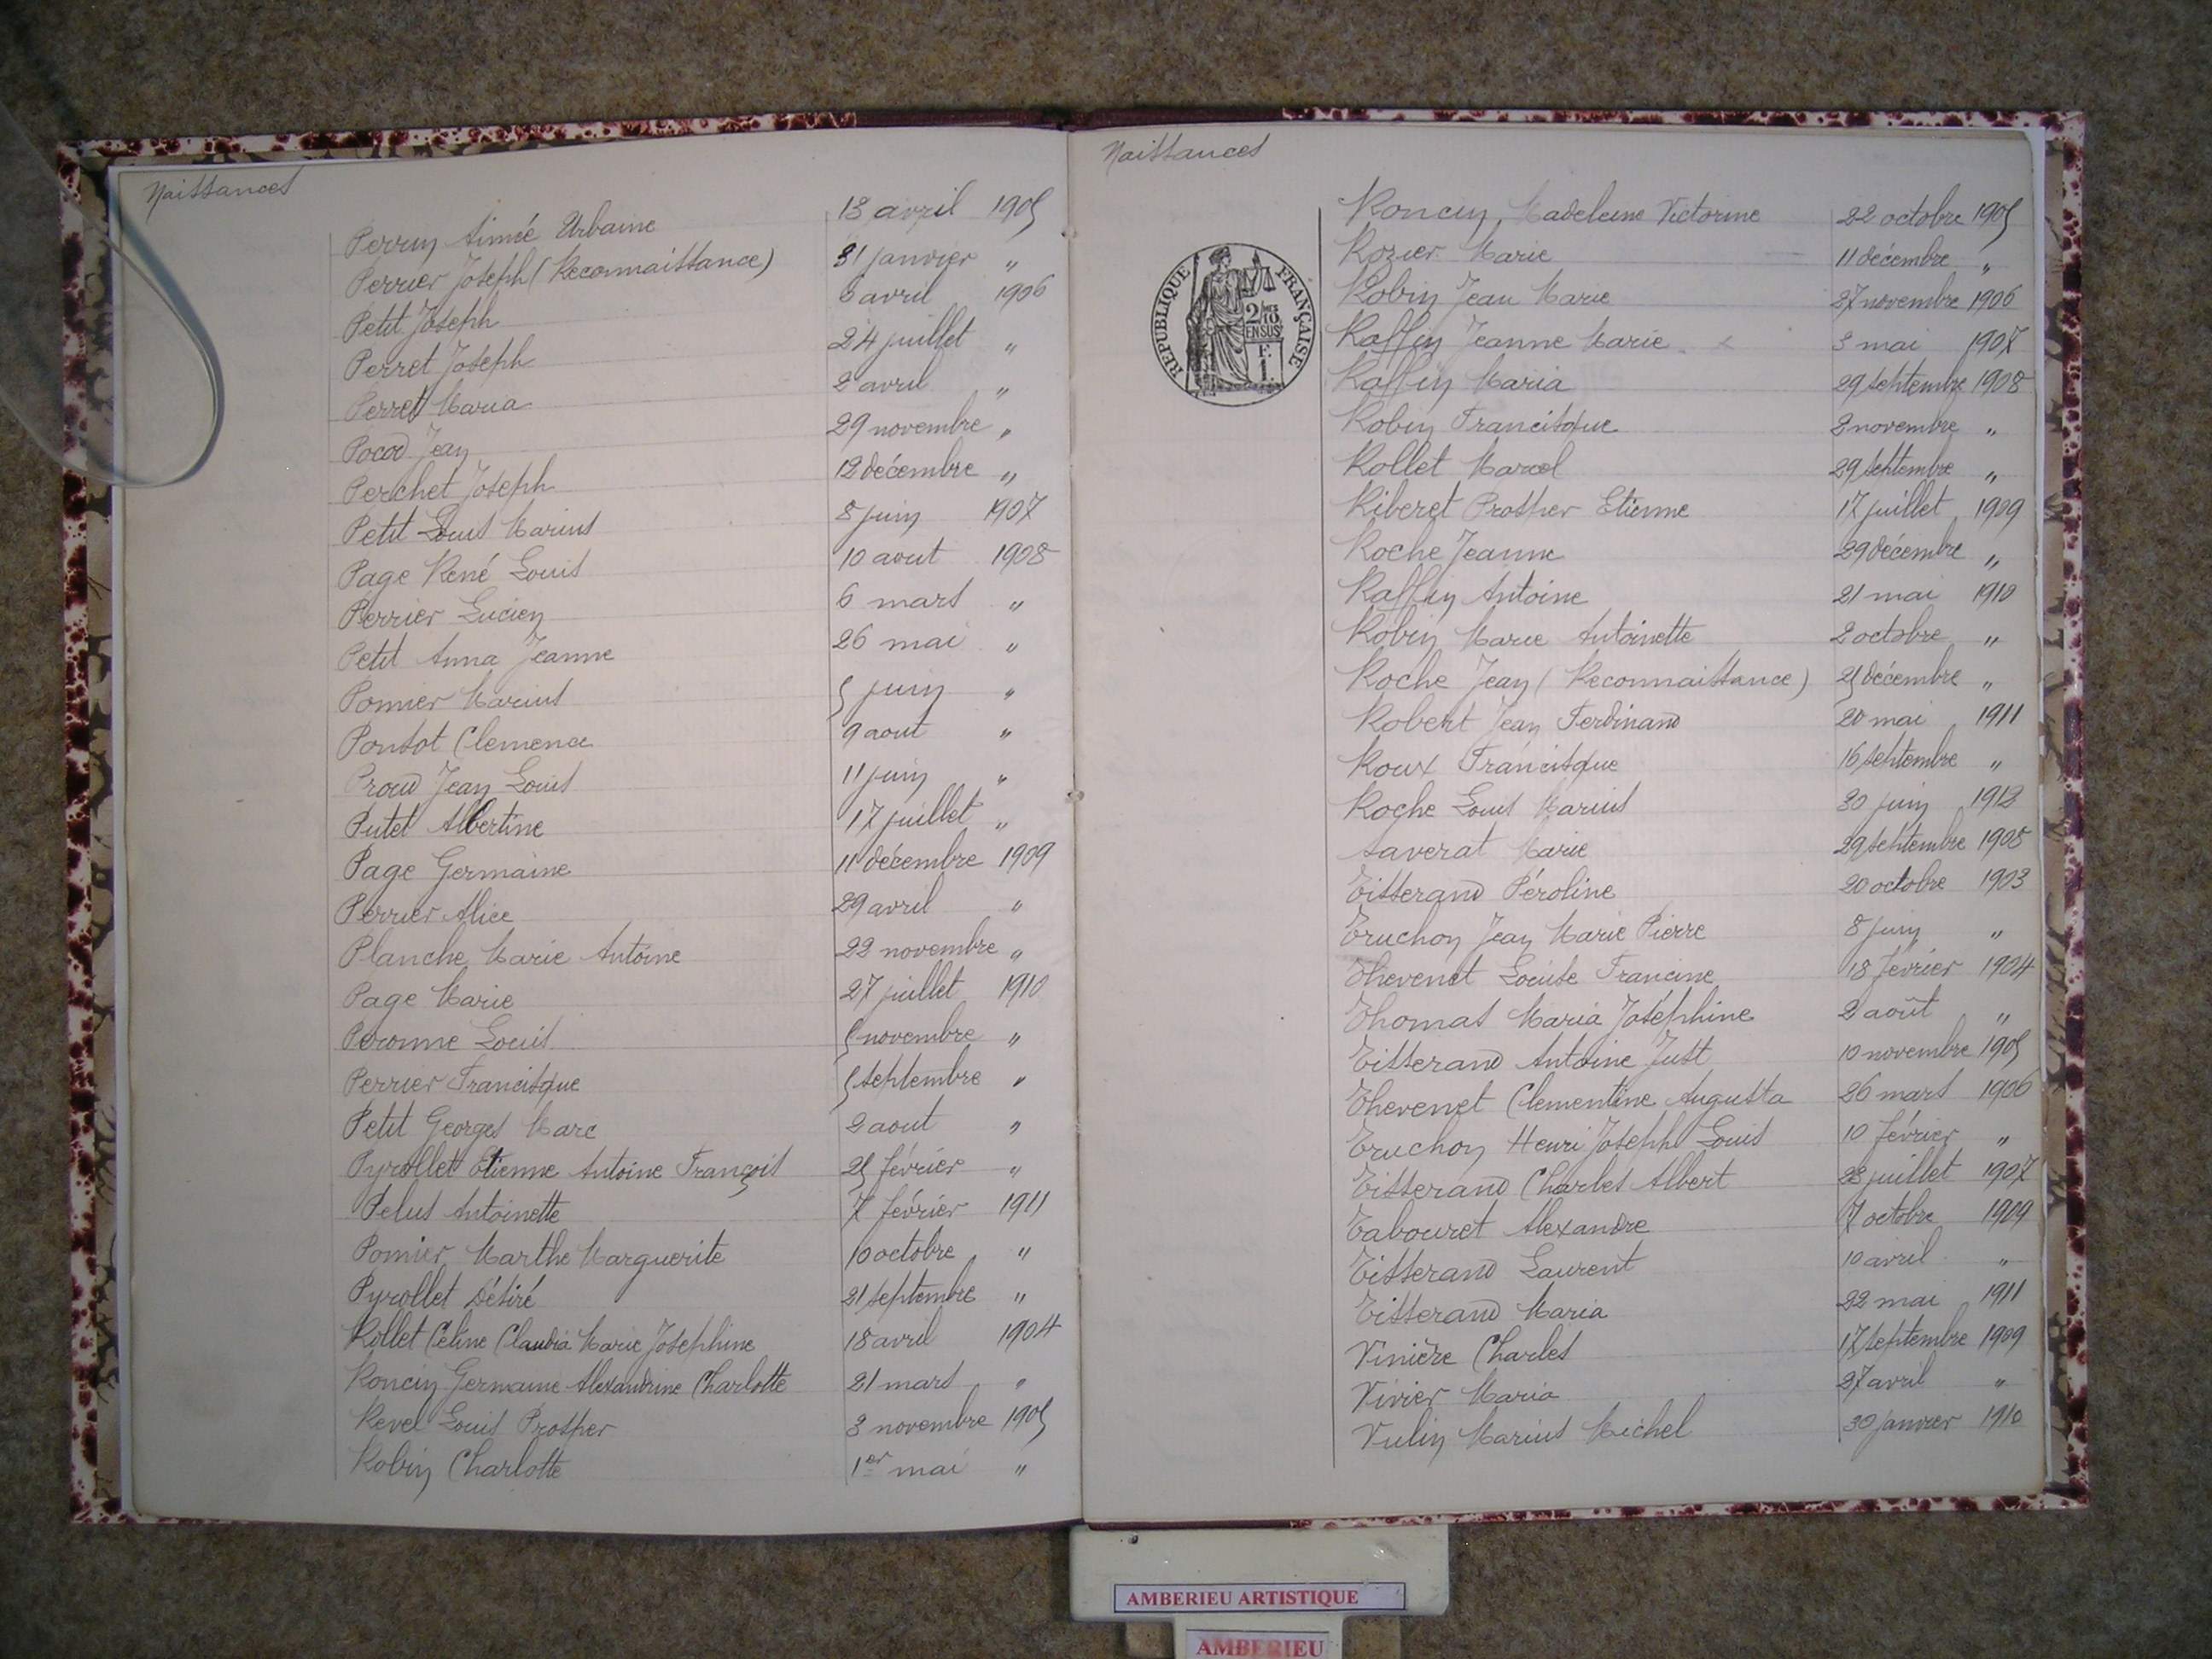 Naissances
Perrin Aimée Urbaine 13 avril 1905
Perrier Joseph (Reconnaissance) 31 janvier "
Petit Joseph 6 avril 1906
Perret Joseph 24 juillet "
Perret Maria 2 avril "
Pocod Jean 29 novembre "
Perchet Joseph 12 décembre "
Petit Louis Marius 8 juin 1907
Page René Louis 10 aout 1908
Perrier Lucien 6 mars "
Petit Anna Jeanne 26 mai "
Pomier Marius 5 juin "
Ponsot Clemence 9 aout "
Proud Jean Louis 11 juin "
Putet Albertine 17 juillet "
Page Germaine 11 décembre 1909
Perrier Alice 29 avril "
Planche Marie Antoine 22 novembre "
Page Marie 27 juillet 1910
Peronne Louis 5 novembre "
Perrier Francisque 5 septembre "
Petit Georges Marc 2 aout "
Pyrollet Etienne Antoine François 25 février "
Pelus Antoinette 7 février 1911
Pomier Marthe Marguerite 10 octobre "
Pyrollet Désiré 21 septembre "
Rollet Céline Claudia Marie Josephine 18 avril 1904
Roncin Germaine Alexandrine Charlotte 21 mars "
Revel Louis Prosper 3 novembre 1905
Robin Charlotte 1er mai "
Naissances
REPUBLIQUE FRANÇAISE
2/10mes
EN SUS
F.
1.
Roncin Madeleine Victorine 22 octobre 1905
Rozier Marie 11 décembre "
Robin Jean Marie 27 novembre 1906
Raffin Jeanne Marie 3 mai 1907
Raffin Maria 29 septembre 1908
Robin Francisque 2 novembre "
Rollet Marcel 29 septembre "
Riberet Prosper Etienne 17 juillet 1909
Roche Jeanne 29 décembre "
Raffin Antoine 21 mai 1910
Robin Marie Antoinette 2 octobre "
Roche Jean (Reconnaissance) 25 décembre "
Robert Jean Ferdinand 20 mai 1911
Roux Francisque 16 septembre "
Roche Louis Marius 30 juin 1912
Saverat Marie 29 septembre 1908
Tisserand Péroline 20 octobre 1903
Truchon Jean Marie Pierre 8 juin "
Thevenet Louise Francine 18 février 1904
Thomas Maria Joséphine 2 août "
Tisserand Antoine Just 10 novembre 1905
Thevenet Clementine Augusta 26 mars 1906
Truchon Henri Joseph Louis 10 février "
Tisserand Charles Albert 28 juillet 1907
Tabouret Alexandre 7 octobre 1909
Tisserand Laurent 10 avril "
Tisserand Maria 22 mai 1911
Vinière Charles 17 septembre 1909
Vivier Maria 27 avril "
Vulin Marius Michel 30 janvier 1910
AMBERIEU ARTISTIQUE
AMBERIEU